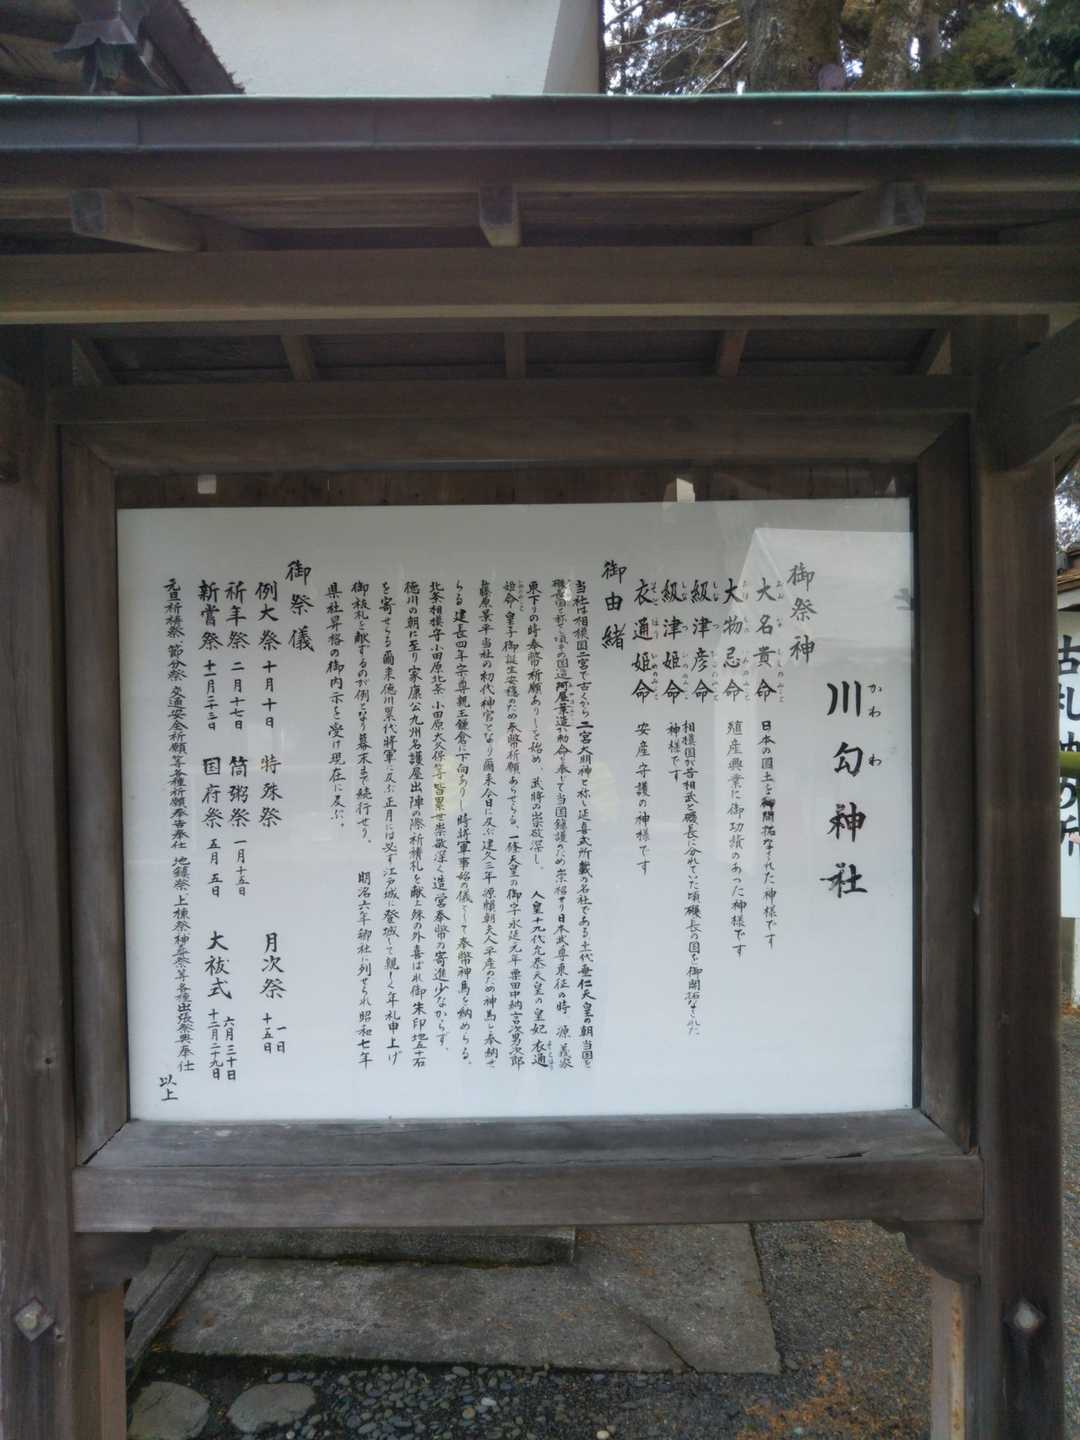 川勾神社
かわわ
御祭神
大名貴命 日本の国土を御開拓なされた神様です
大物忌命 殖産興業に御功績のあった神様です
級津彦命 相模国が昔相武と磯長に分れていた頃磯長の国を御開拓なされた
級津姫命 神様です
衣通姫命 安産守護の神様です
御由緒
当社は相模国二宮で古くから二宮大明神と称し延喜式所載の名社である十一代垂仁天皇の朝当国を
磯長国と称せし頃その国造阿屋葉造が勅命を奉じて当国鎮護のため崇祀せり日本武尊東征の時 源義家
東下りの時奉幣祈願ありしを始め、武将の崇敬深し。 人皇十九代允恭天皇の皇妃衣通
姫命皇子御誕生安穏のため奉幣祈願あらせらる。一條天皇の御宇永延元年粟田中納言次男次郎
藤原景平当社の初代神官となり爾来今日に及ぶ建久三年源頼朝夫人平産のため神馬を奉納せ
らる建長四年宗尊親王鎌倉に下向ありし時将軍事始の儀として奉幣神馬を納めらる。
北条相模守小田原北条 小田原大久保等皆累世崇敬深く造営奉幣の寄進少なからず、
徳川の朝に至り家康公九州名護屋出陣の際祈祷札を献上殊の外喜ばれ御朱印地五十石
を寄せらる爾来徳川累代将軍に及ぶ正月には必ず江戸城に登城して親しく年礼申上げ
御祓札を献ずるのが例となり幕末まで続行せり。 明治六年郷社に列せられ昭和七年
県社昇格の御内示を受け現在に及ぶ。
御祭儀
例大祭 十月十日 特殊祭 月次祭 一日 十五日
祈年祭 二月十七日 筒粥祭 一月十五日
新嘗祭 十一月二十三日 国府祭 五月五日 大祓式 六月三十日 十二月二十九日
元旦祈祷祭、節分祭 交通安全祈願等各種祈願奉奏奉仕 地鎮祭、上棟祭神葬祭等各種出張祭典奉仕
以上
古札